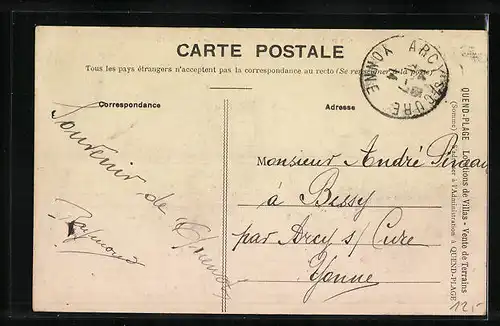 CARTE POSTALE
Tous les pays étrangers n'acceptent pas la correspondance au recto (Se renseigner à la poste)
Correspondance
Adresse
Souvenir de
Raymond
Monsieur André
à Bessy
par Arcy s/ Cure
Yonne
ARCY-S-CURE
YONNE
QUEND-PLAGE Locations de Villas - Vente de Terrains
(Somme) S'adresser à l'Administration à QUEND-PLAGE
12,-